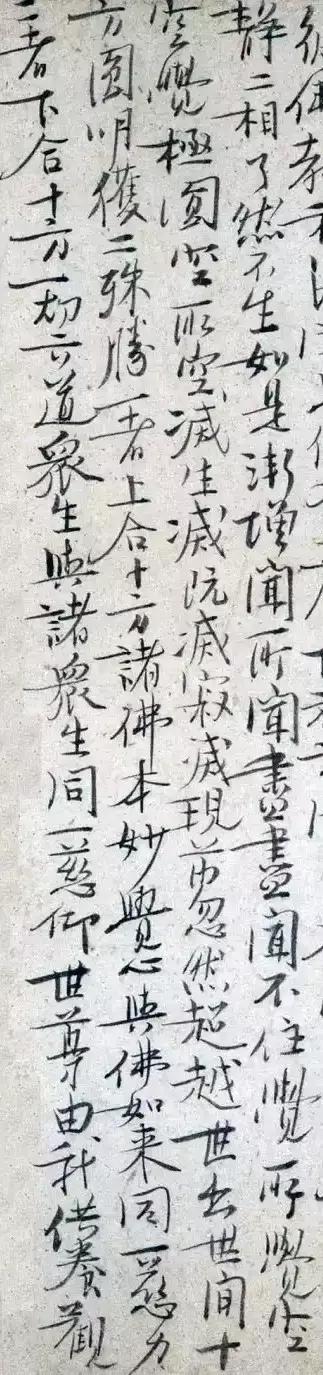 佛教
靜二相了然不生如是漸增聞所聞盡盡聞不住覺所覺空
空覺極圓空所空滅生滅既滅寂滅現前忽然超越世出世間十
方圓明獲二殊勝一者上合十方諸佛本妙覺心與佛如来同一慈力
二者下合十方一切六道衆生與諸衆生同一慈仰世尊由我供養觀